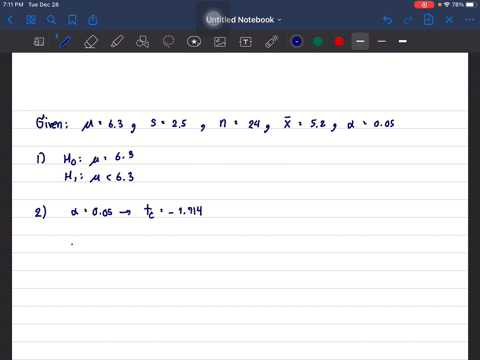 7:11 PM Tue Dec 28
78%
Untitled Notebook
Given: μ = 6.3 , s = 2.5 , n = 24 , x̄ = 5.2 , α = 0.05
1) H₀: μ = 6.3
H₁: μ < 6.3
2) α = 0.05 → t_c = - 1.714